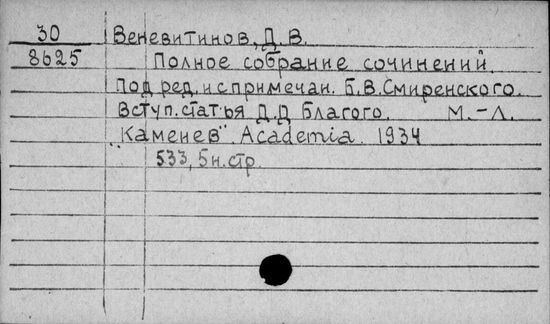 30 Веневитинов, Д. В.
8625 Полное собрание сочинений.
Под ред. и с примечан. Б. В. Смиренского.
Вступ. статья Д. Д. Благого. М.-Л.
"Каменев". Academia. 1934
533, 5 н. стр.